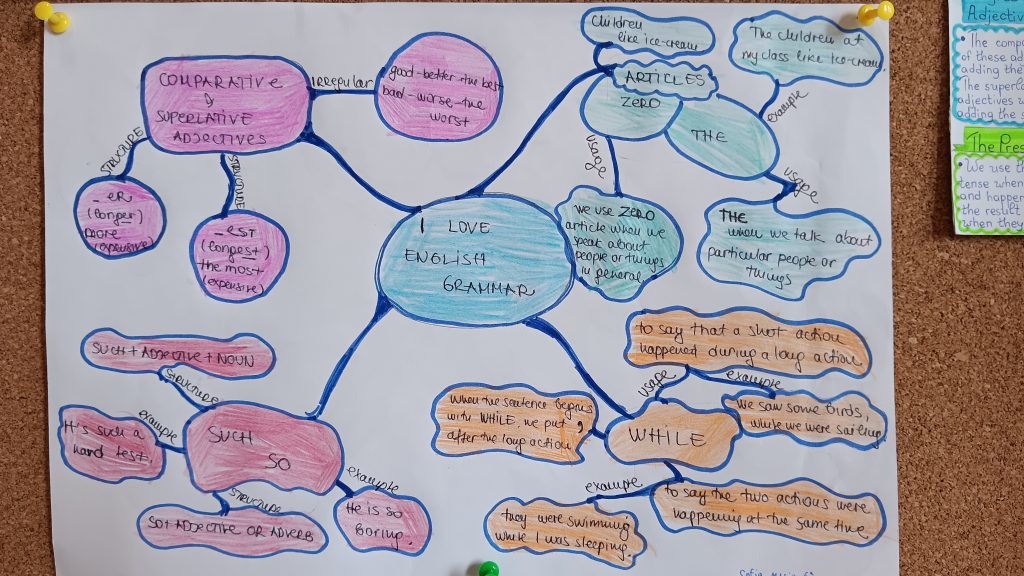 I LOVE
ENGLISH
GRAMMAR
COMPARATIVE
&
SUPERLATIVE
ADJECTIVES
irregular
good-better-the best
bad-worse-the
worst
STRUCTURE
-ER
(longer)
more
(expensive)
STRUCTURE
-EST
(longest)
the most
(expensive)
ARTICLES
ZERO
THE
Children
like ice-cream
The children at
my class like ice-cream.
example
usage
we use ZERO
article when we
speak about
people or things
in general
usage
THE
when we talk about
particular people or
things
SUCH
SO
STRUCTURE
SUCH+ADJECTIVE+NOUN
example
It's such a
hard test.
STRUCTURE
SO+ADJECTIVE OR ADVERB
example
He is so
boring.
WHILE
usage
to say that a short action
happened during a long action
example
We saw some birds,
while we were sailing
When the sentence begins
with WHILE, we put ,
after the long action.
to say the two actions were
happening at the same time
example
they were swimming
while I was sleeping.
Adjectiv
• The comp
of these ad
adding the
The superla
adjectives w
adding the s
The Pres
• We use th
tense when
and happen
the result
when they